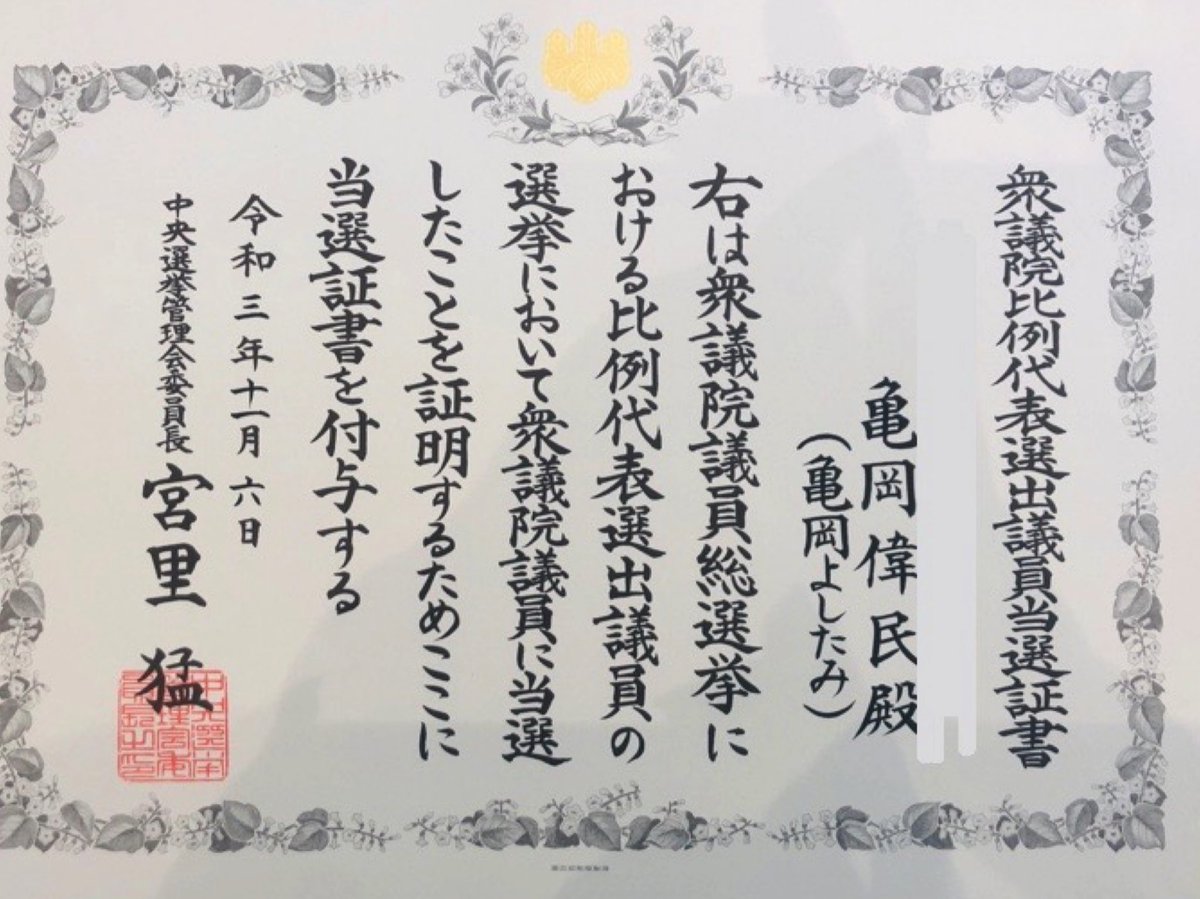 衆議院比例代表選出議員当選証書
亀岡偉民殿
(亀岡よしたみ)
右は衆議院議員総選挙に
おける比例代表選出議員の
選挙において衆議院議員に当選
したことを証明するためここに
当選証書を付与する
令和三年十一月六日
中央選挙管理会委員長 宮里猛